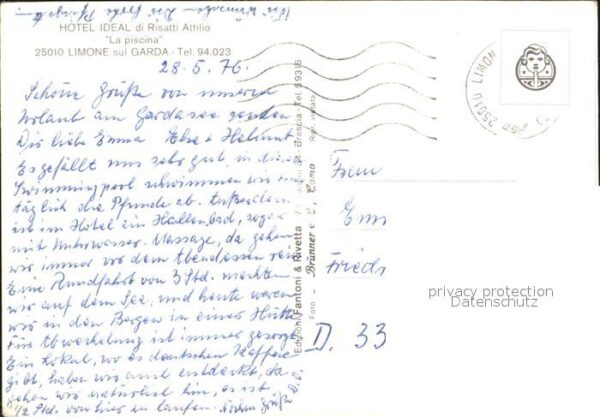 Wir wünschen Die frohe Pfingsten.
HOTEL IDEAL di Risatti Attilio
"La piscina"
25010 LIMONE sul GARDA - Tel. 94.023
28.5.76
Schöne Grüße von unserem
Urlaub am Gardasee senden
Dir liebe Emma Else + Helmut
Es gefällt uns sehr gut, in diesem
Swimmingpool schwimmen wir uns
täglich die Pfunde ab. Außerdem
ist im Hotel ein Hallenbad, sogar
mit Unterwasser-Massage, da gehen
wir immer vor dem Abendessen rein
Eine Rundfahrt von 3 Std. machten
wir auf dem See, und heute waren
wir in den Bergen in einer Hütte
Für Abwechslung ist immer gesorgt
Ein Lokal, wo es deutschen Kaffee
gibt, haben wir auch entdeckt, da
gehen wir natürlich hin, es ist
1/2 Std. von hier zu laufen. Grüße D.O.
Edizioni Fantoni & Rivetta - Brescia - Tel. 59316
Foto - Brünner & C., Como
Ripr. vietata
25010 LIMON
Frau
Em
Friedr
D. 33
privacy protection
Datenschutz